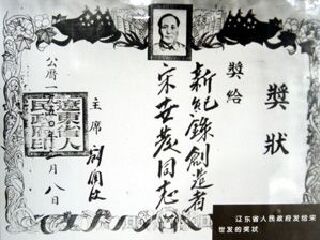 獎狀
獎給
新紀錄創造者
宋世發同志
主席
公曆一九五〇年 月八日
遼東省人
民政府印
辽东省人民政府发给宋
世发的奖状